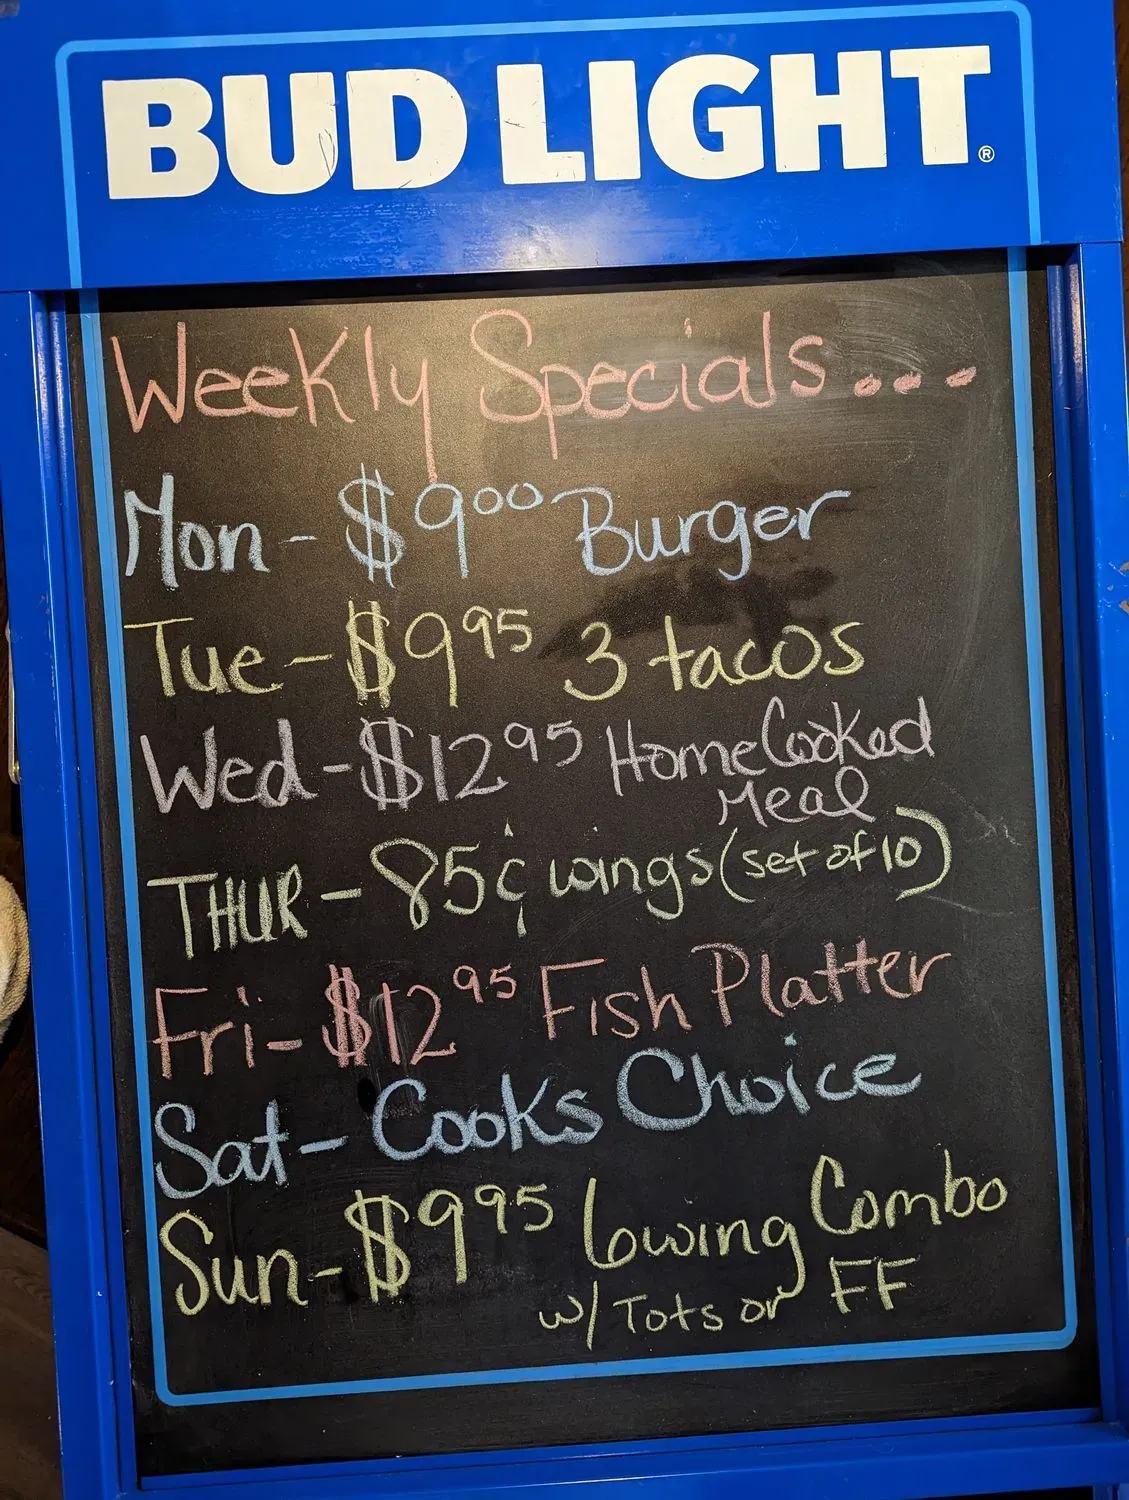 BUD LIGHT®
Weekly Specials...
Mon - $9.00 Burger
Tue - $9.95 3 tacos
Wed - $12.95 Home Cooked
Meal
THUR - 85¢ wings (set of 10)
Fri - $12.95 Fish Platter
Sat - Cooks Choice
Sun - $9.95 6 wing Combo
w/ Tots or FF